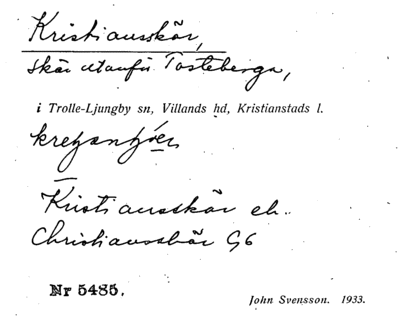 Kristiansskär,
skär utanför Tosteberga,
i Trolle-Ljungby sn, Villands hd, Kristianstads l.
Kristiansskär el.
Christiansskär G6
Nr 5485.
John Svensson. 1933.